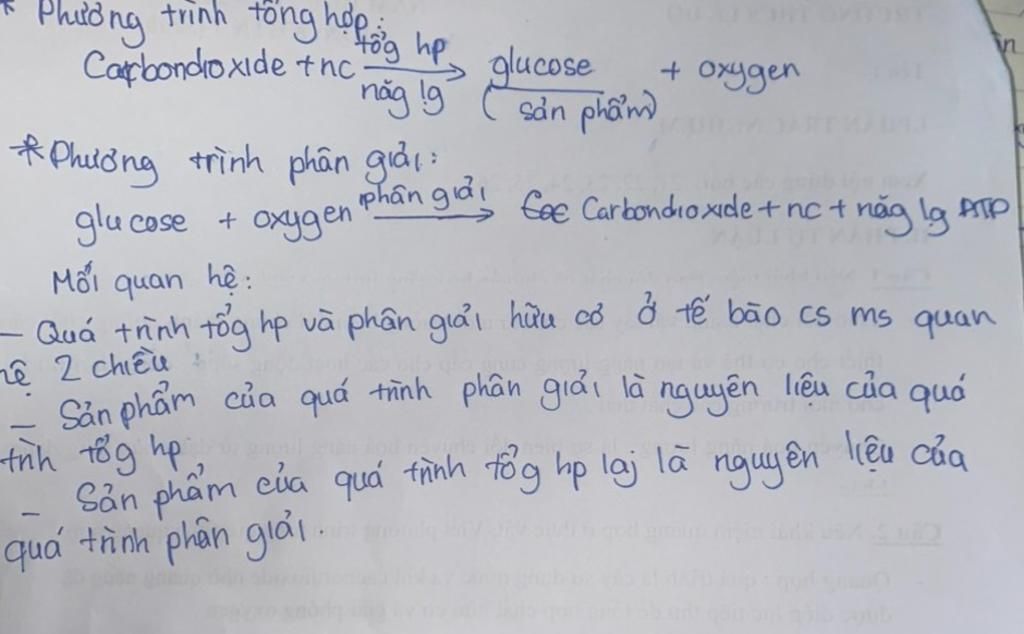 * Phương trình tổng hợp:
Carbondioxide + nc tổg hp → glucose + oxygen
năg lg (sản phẩm)
* Phương trình phân giải:
glucose + oxygen phân giải → Carbondioxide + nc + năg lg ATP
Mối quan hệ:
– Quá trình tổg hp và phân giải hữu cơ ở tế bào cs ms quan
hệ 2 chiều
– Sản phẩm của quá trình phân giải là nguyên liệu của quá
trình tổg hp
– Sản phẩm của quá trình tổg hp lại là nguyên liệu của
quá trình phân giải.